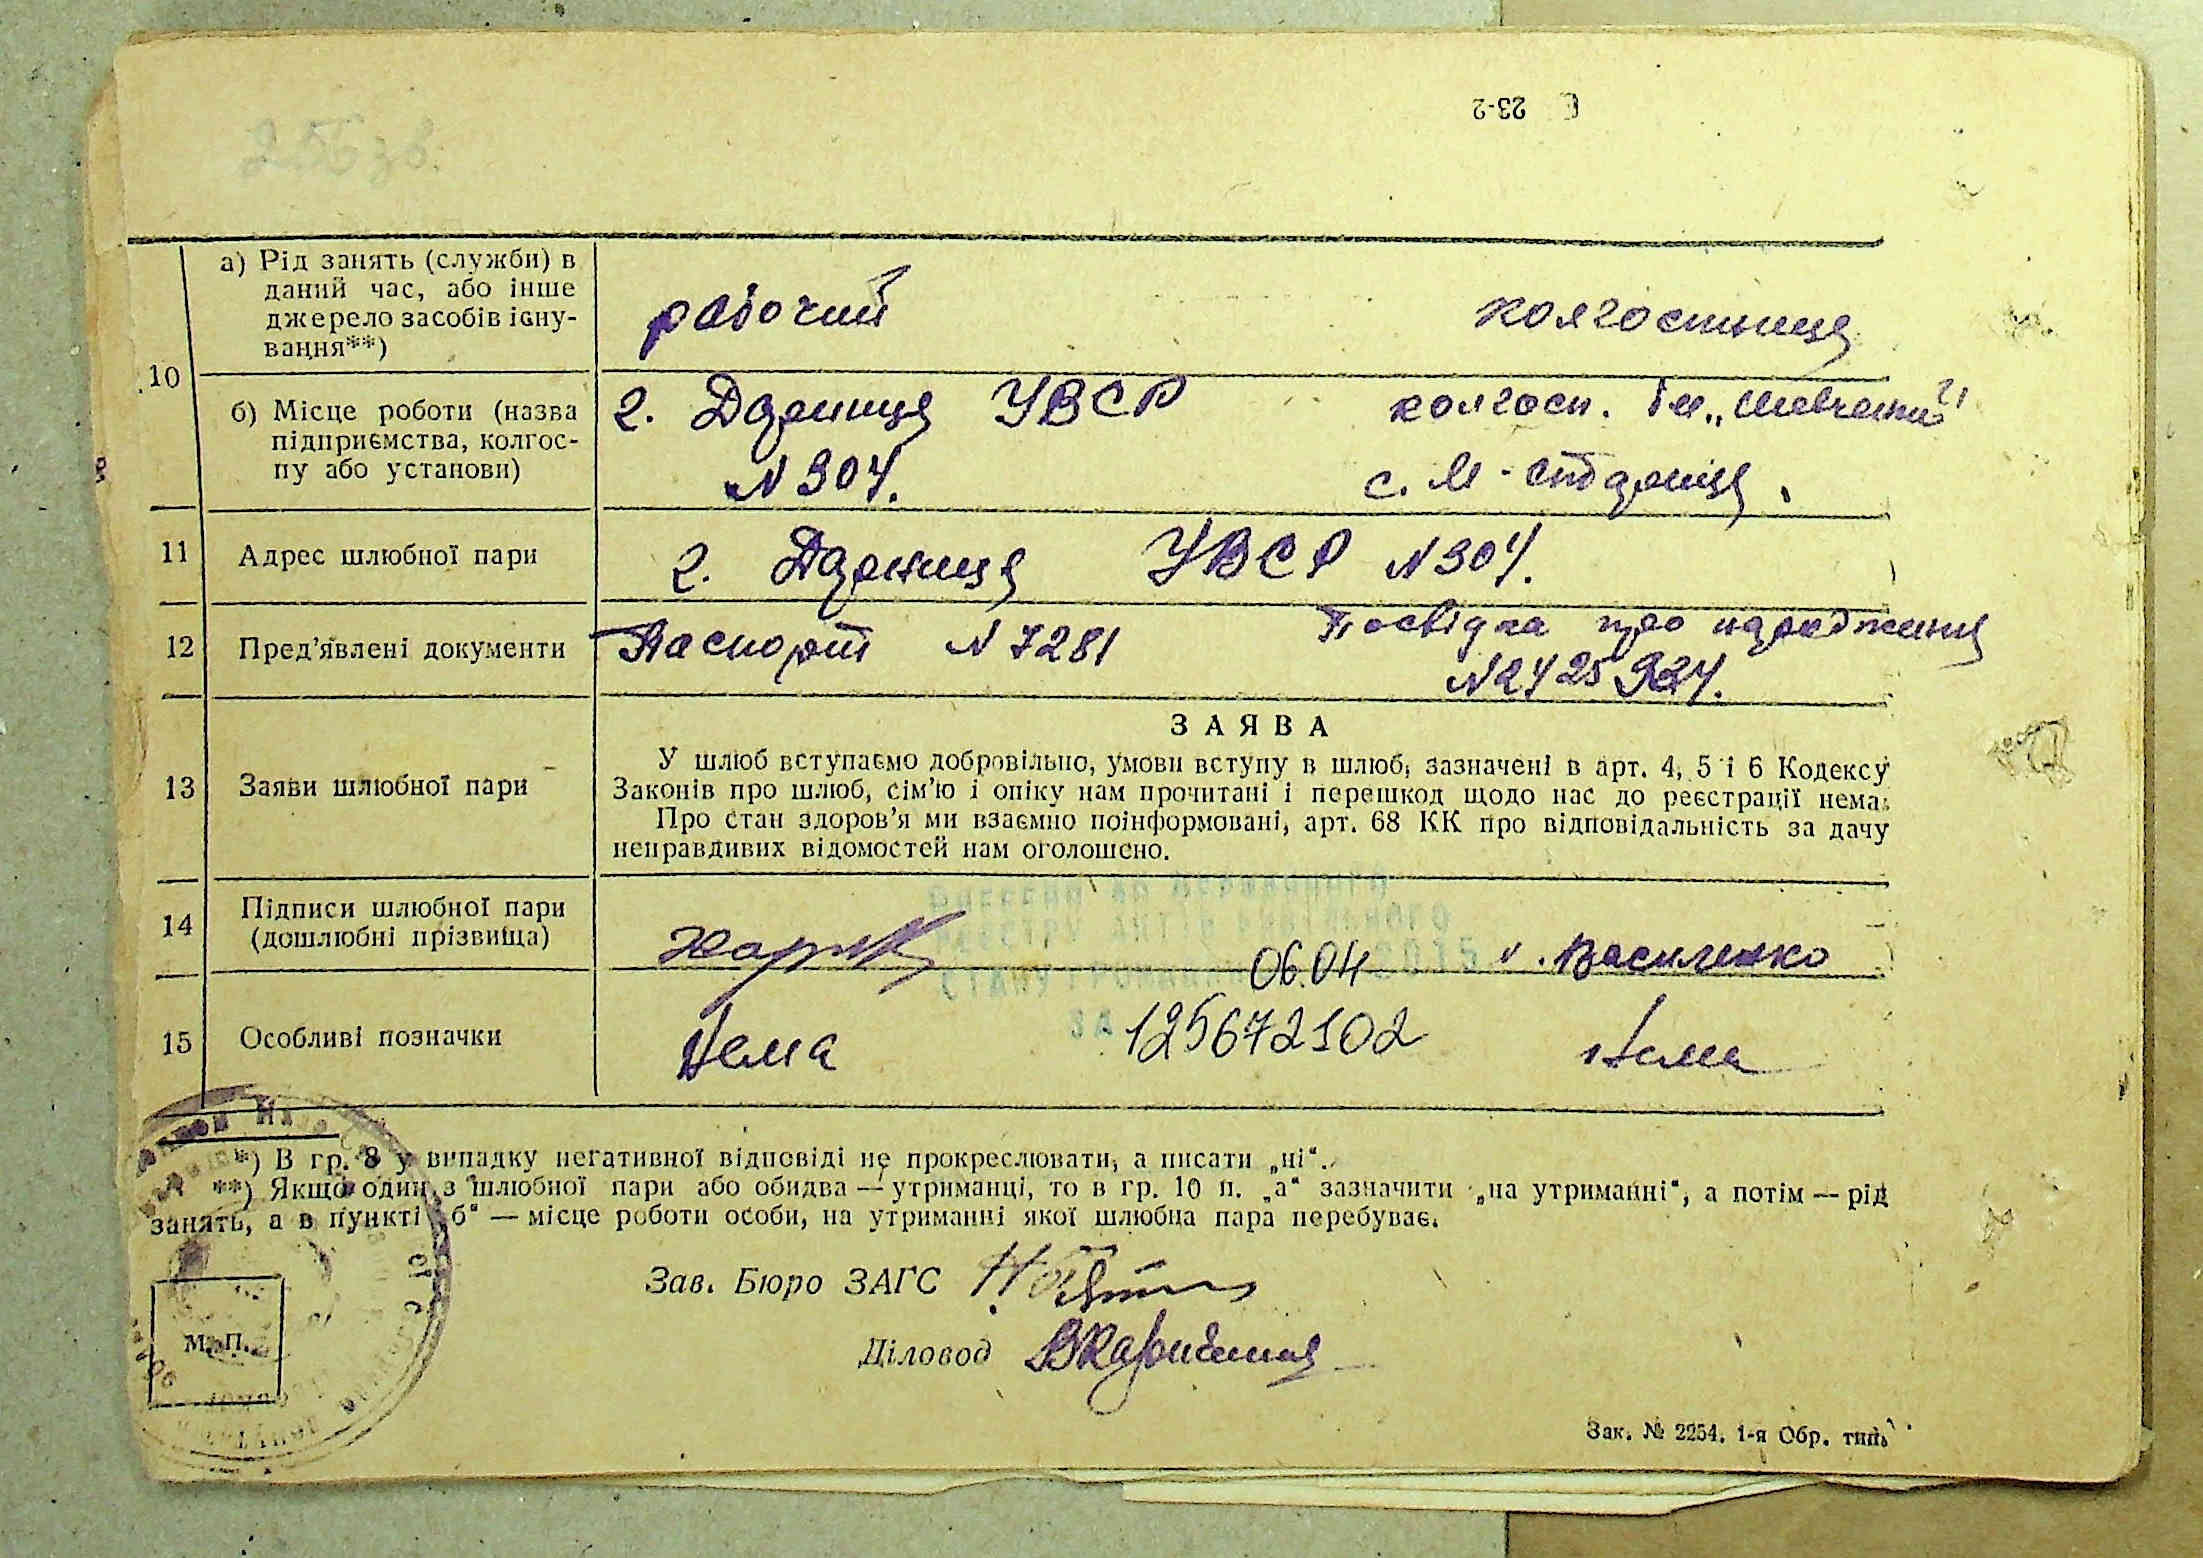 23-2
а) Рід занять (служби) в
даний час, або інше
джерело засобів існу-
вання**)
рабочий
колгоспниця
10
б) Місце роботи (назва
підприємства, колгос-
пу або установи)
г. Дарниця УВСР
N 304.
колгосп. Ім. „Шевченка"
с. М-
11
Адрес шлюбної пари
г. Дарниця УВСР N 304.
12
Пред'явлені документи
Паспорт N 7281
Посвідка про народження
N 2425924.
13
Заяви шлюбної пари
ЗАЯВА
У шлюб вступаємо добровільно, умови вступу в шлюб, зазначені в арт. 4, 5 і 6 Кодексу
Законів про шлюб, сім'ю і опіку нам прочитані і перешкод щодо нас до реєстрації нема.
Про стан здоров'я ми взаємно поінформовані, арт. 68 КК про відповідальність за дачу
неправдивих відомостей нам оголошено.
14
Підписи шлюбної пари
(дошлюбні прізвища)
Внесено до Державного
реєстру актів цивільного
стану громадян 06.04 2015
Василенко
за 125672102
15
Особливі позначки
Нема
Нема
*) В гр. 8 у випадку негативної відповіді не прокреслювати, а писати „ні".
**) Якщо один з шлюбної пари або обидва — утриманці, то в гр. 10 п. „а" зазначити „на утриманні", а потім — рід
занять, а в пункті „б" — місце роботи особи, на утриманні якої шлюбна пара перебуває.
Зав. Бюро ЗАГС
Діловод
М. П.
Зак. № 2254. 1-я Обр. тип.